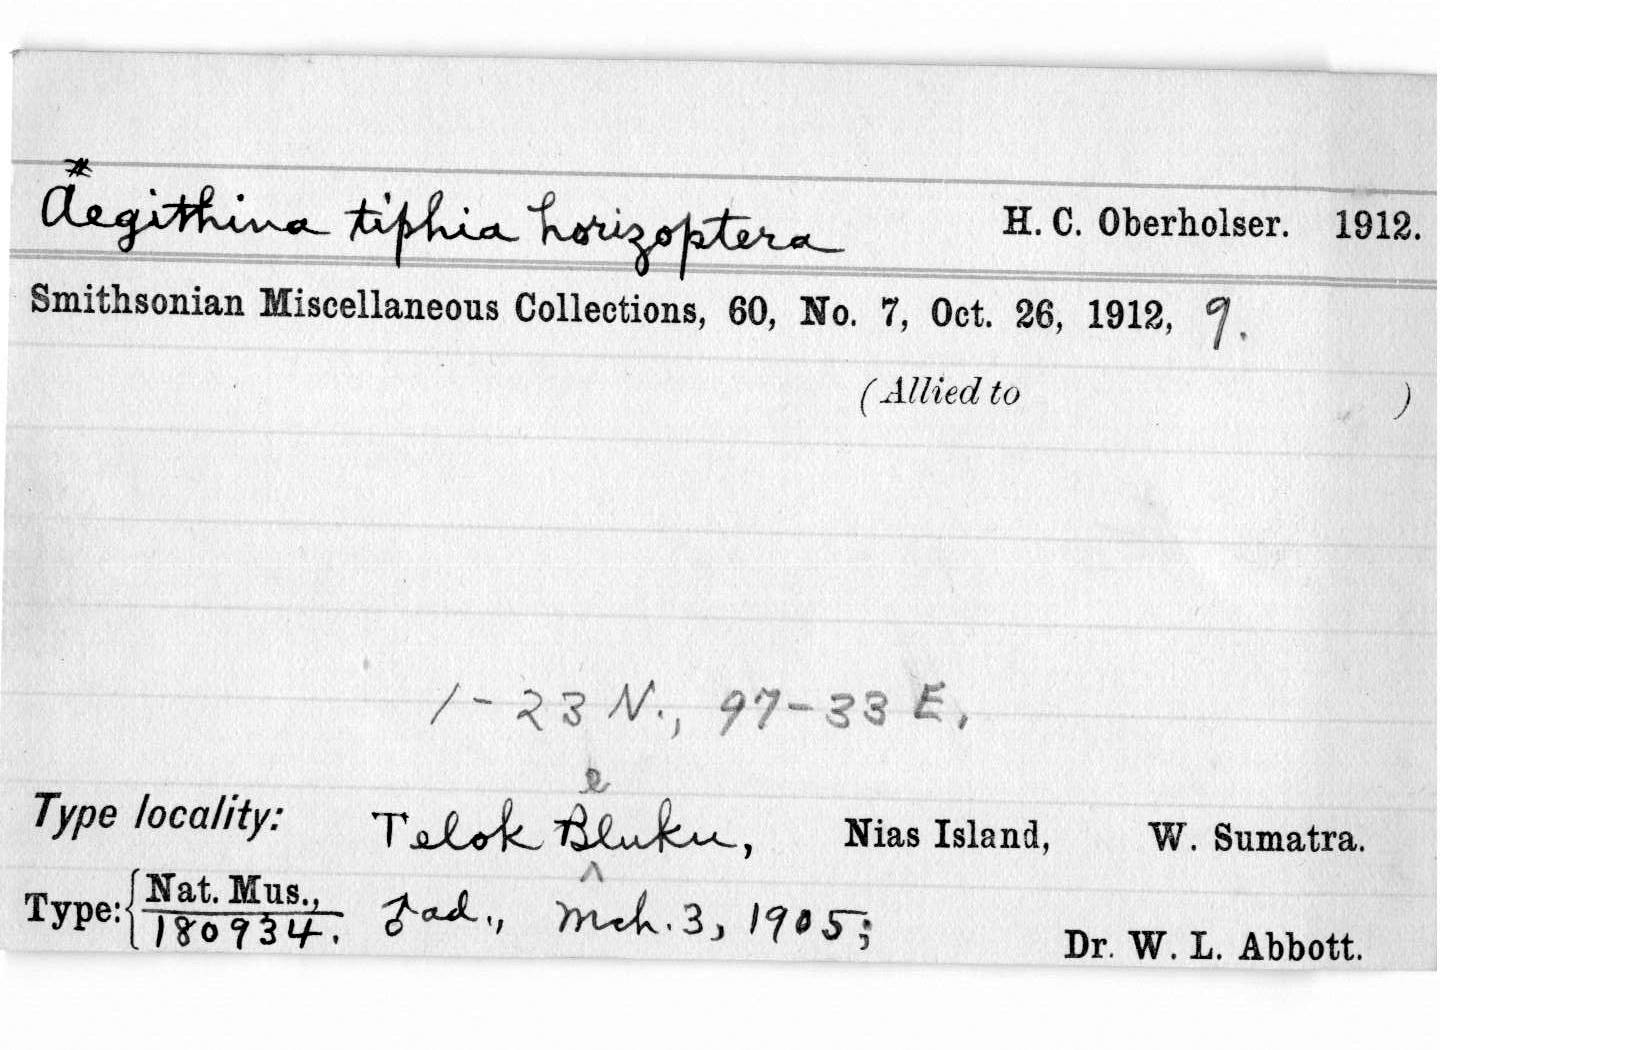 #
Aegithina tiphia horizoptera H. C. Oberholser. 1912.
Smithsonian Miscellaneous Collections, 60, No. 7, Oct. 26, 1912, 9.
(Allied to )
1-23 N., 97-33 E,
e
Telok Bluku,
Type locality: Nias Island, W. Sumatra.
^
Type: { Nat. Mus., 180934. ♂ ad., Mch. 3, 1905; Dr. W. L. Abbott.